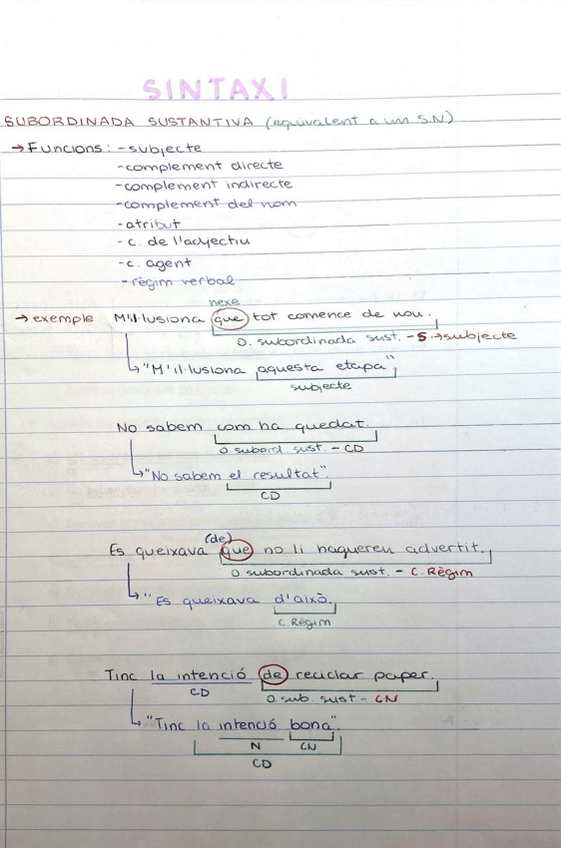 SINTAXI
SUBORDINADA SUSTANTIVA (equivalent a un S.N)
→ Funcions: - subjecte
- complement directe
- complement indirecte
- complement del nom
- atribut
- c. de l'adjectiu
- c. agent
- règim verbal
nexe
→ exemple M'il·lusiona que tot comence de nou.
O. subordinada sust. - S → subjecte
"M'il·lusiona aquesta etapa"
subjecte
No sabem com ha quedat.
O subord. sust. - CD
"No sabem el resultat".
CD
(de)
Es queixava que no li hagueren advertit.
O subordinada sust. - C. Règim
"Es queixava d'això.
C. Règim
Tinc la intenció de reciclar paper.
CD O sub. sust - CN
"Tinc la intenció bona".
N CN
CD